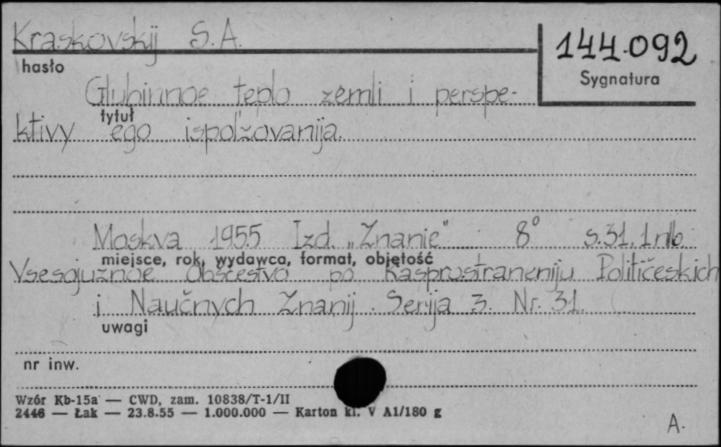 Kraskovskij S.A.
144.092
hasło
Sygnatura
Glubinnoe teplo zemli i perspe-
tytuł
ktivy ego ispol'zovanija.
Moskva 1955 Izd. „Znanie" 8° s.31, 1 nlb
miejsce, rok, wydawca, format, objętość
Vsesojuznoe Obščestvo po Rasprostraneniju Političeskich
i Naučnych Znanij. Serija 3. Nr. 31.
uwagi
nr inw.
Wzór Kb-15a — CWD, zam. 10838/T-1/II
2446 — Łak — 23.8.55 — 1.000.000 — Karton kl. V A1/180 g
A.